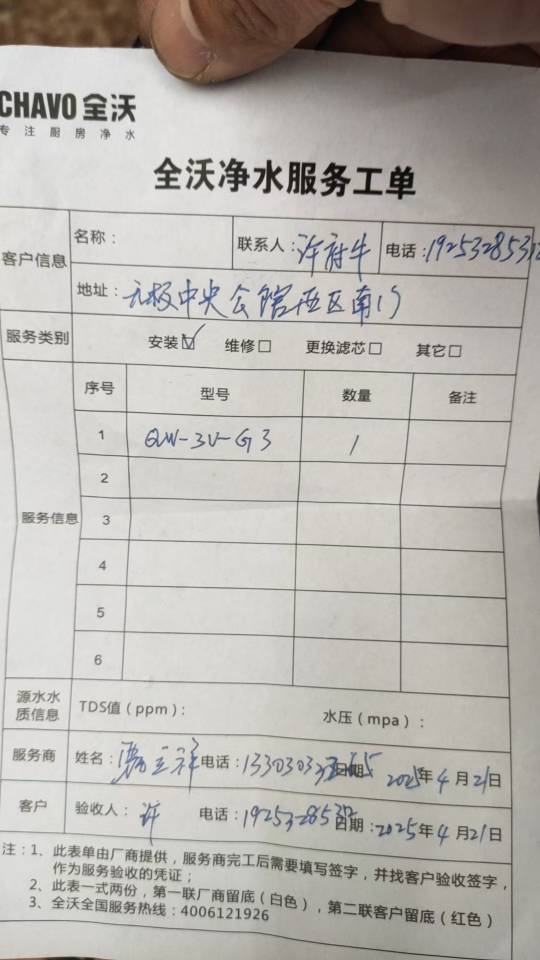 CHAVO 全沃
专注厨房净水
全沃净水服务工单
客户信息
名称：
联系人：许府牛
电话：1925328531
地址：中央会馆西区南门
服务类别
安装☑ 维修□ 更换滤芯□ 其它□
服务信息
序号 型号 数量 备注
1 QW-3U-G3 1
2
3
4
5
6
源水水质信息
TDS值（ppm）： 水压（mpa）：
服务商
姓名：立祥 电话：13303033 日期：2025年4月21日
客户
验收人：许 电话：19253285312 日期：2025年4月21日
注：1、此表单由厂商提供，服务商完工后需要填写签字，并找客户验收签字，
作为服务验收的凭证；
2、此表一式两份，第一联厂商留底（白色），第二联客户留底（红色）
3、全沃全国服务热线：4006121926